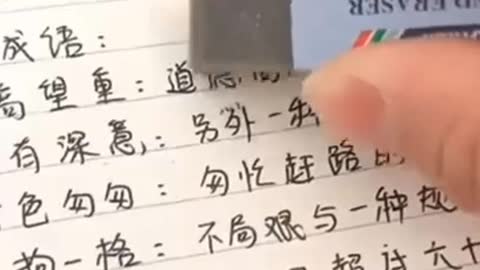 ERASER
成语:
高望重: 道
有深意: 另外一种
色匆匆: 匆忙赶路的
拘一格: 不局限与一种规
超过六十